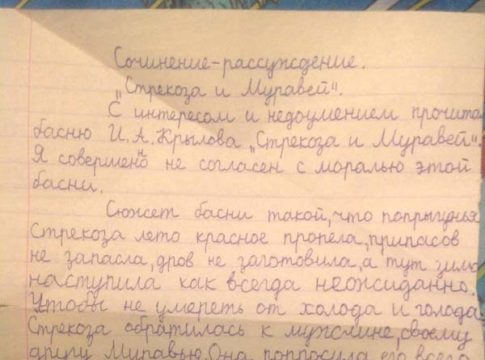 Сочинение-рассуждение.
„Стрекоза и Муравей".
С интересом и недоумением прочита
басню И.А.Крылова „Стрекоза и Муравей".
Я совершенно не согласен с моралью этой
басни.
Сюжет басни такой, что попрыгунья
Стрекоза лето красное пропела, припасов
не запасла, дров не заготовила, а тут зима
наступила как всегда неожиданно.
Чтобы не умереть от холода и голода
Стрекоза обратилась к мужчине, своему
другу Муравью. Она попросила его всего